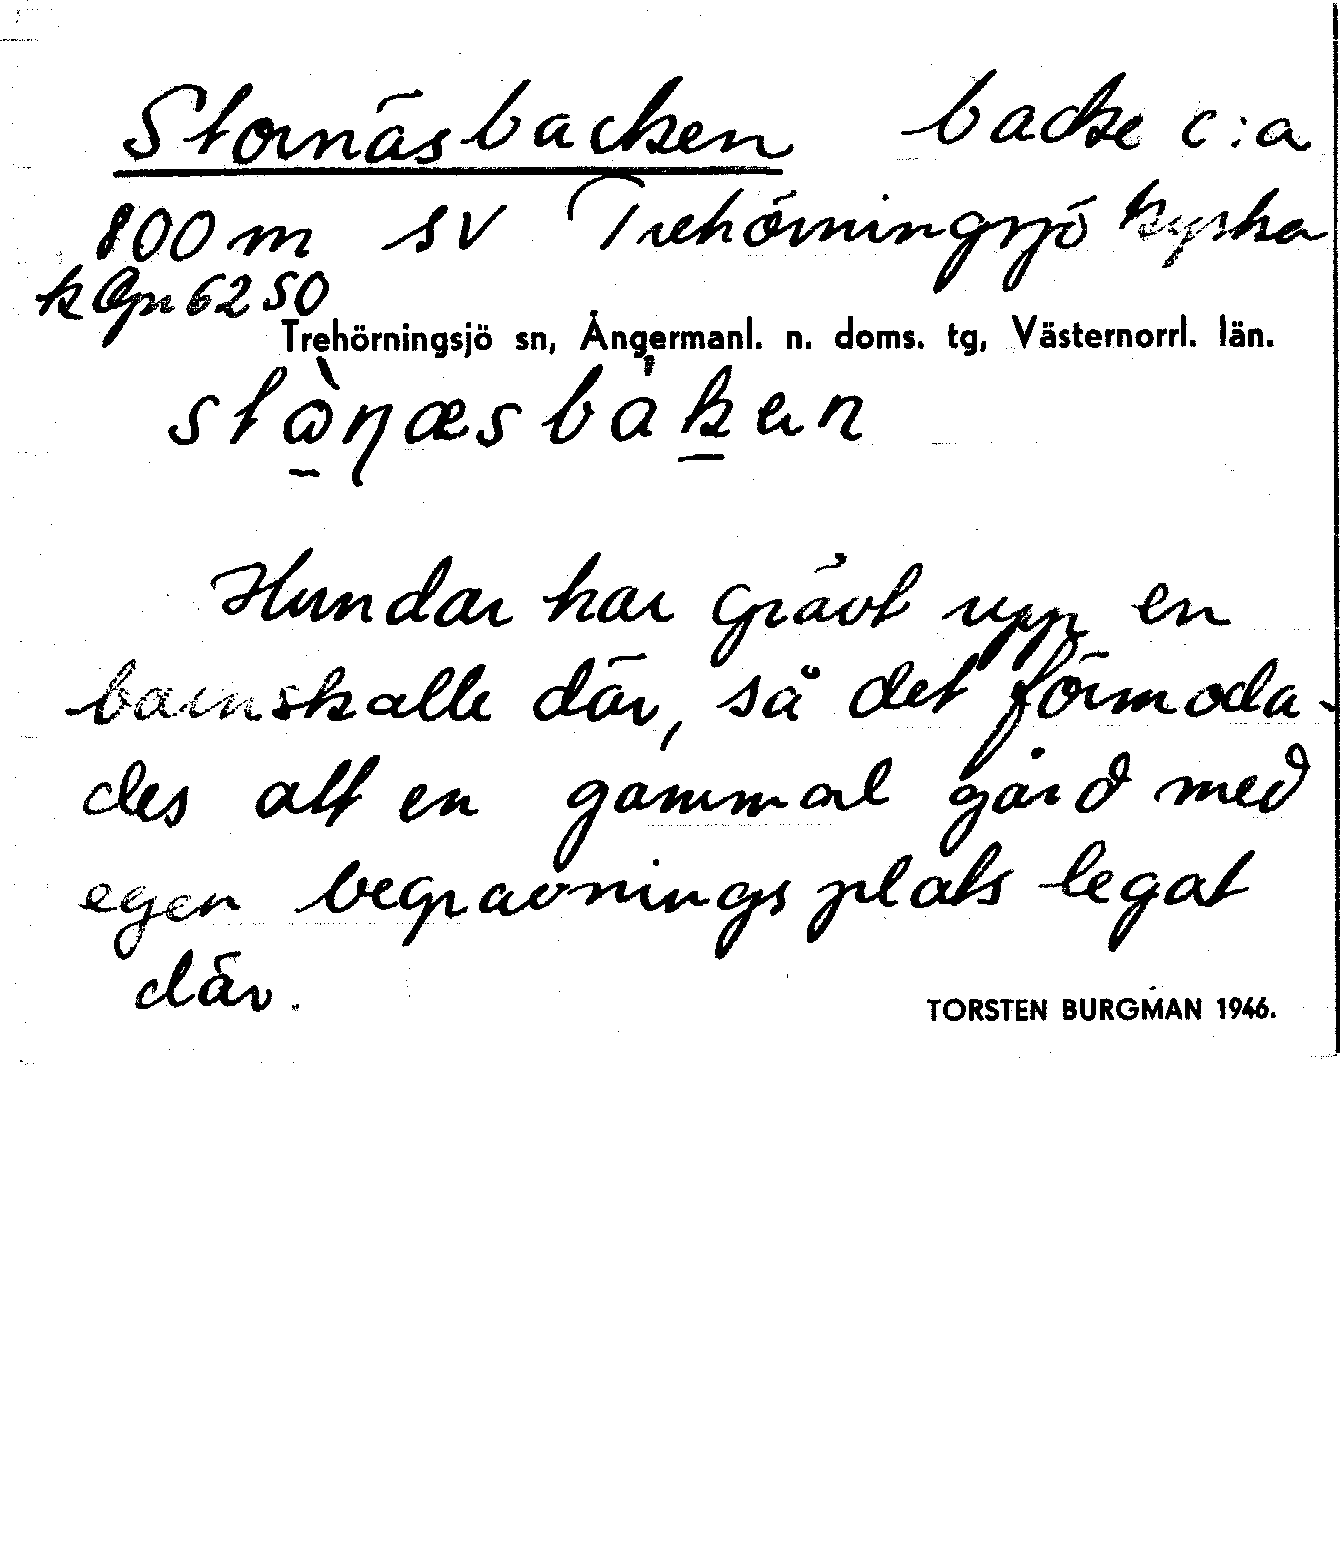 Stornäsbacken backe c:a
800 m SV Trehörningsjö kyrka
k Gpr 6250
Trehörningsjö sn, Ångermanl. n. doms. tg, Västernorrl. län.
Hundar har grävt upp en
barnskalle där, så det förmoda-
des att en gammal gård med
egen begravningsplats legat
där.
TORSTEN BURGMAN 1946.